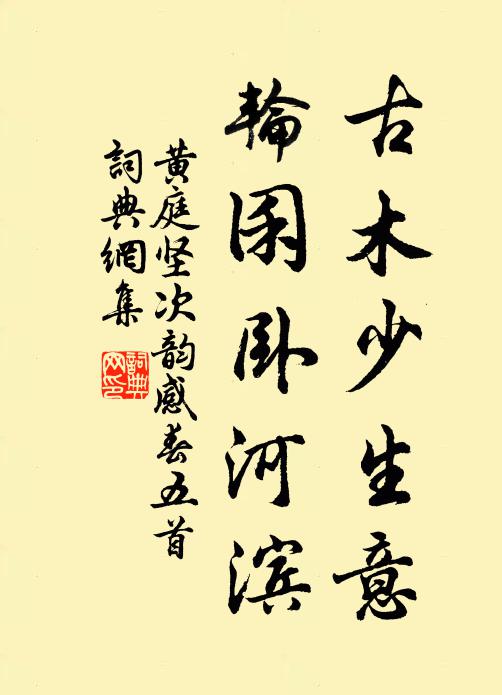 古木少生意
輪囷卧河滨
黄庭坚次韵感春五首
詞典網集
詞典网印